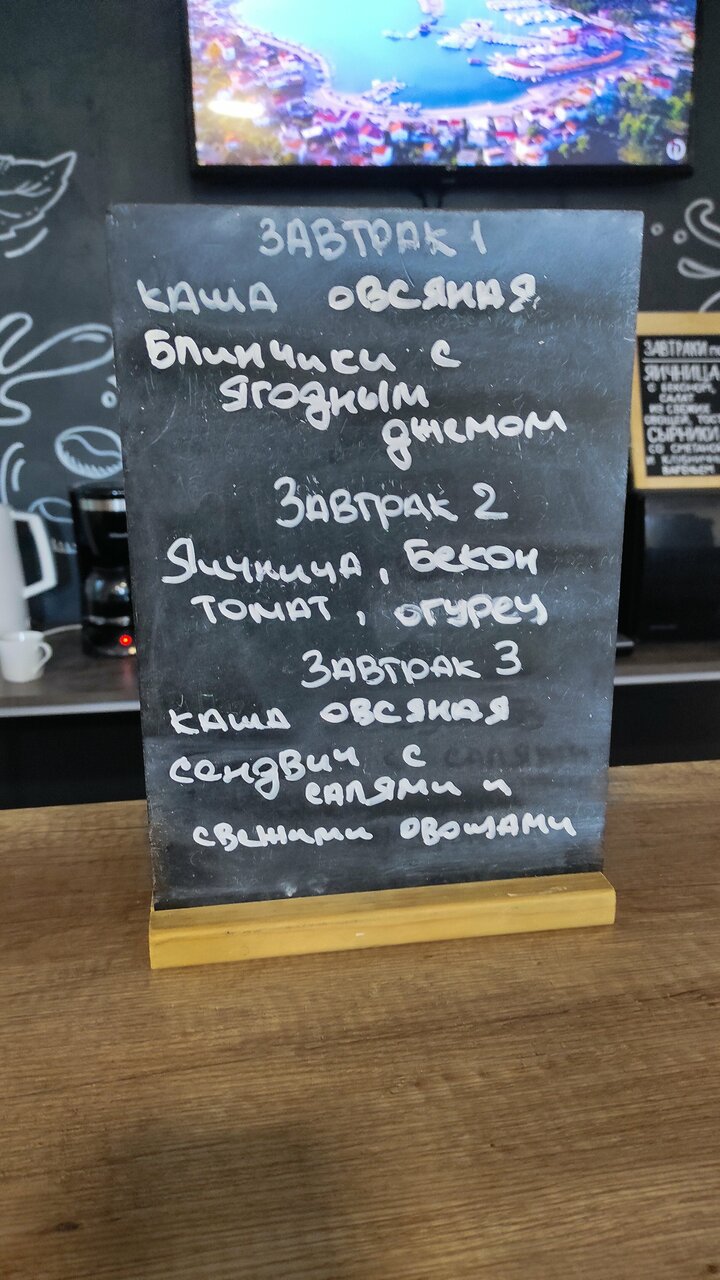 ЗАВТРАК 1
КАША ОВСЯНАЯ
БЛИНЧИКИ С
ЯГОДНЫМ
ДЖЕМОМ
ЗАВТРАК 2
ЯИЧНИЦА, БЕКОН
ТОМАТ, ОГУРЕЦ
ЗАВТРАК 3
КАША ОВСЯНАЯ
СЕНДВИЧ С
САЛЯМИ И
СВЕЖИМИ ОВОЩАМИ
ЗАВТРАКИ
ЯИЧНИЦА
С БЕКОНОМ,
САЛАТ
ИЗ СВЕЖИХ
ОВОЩЕЙ, ТОС
СЫРНИКИ
СО СМЕТАНО
И
ВАРЕНЬЕМ